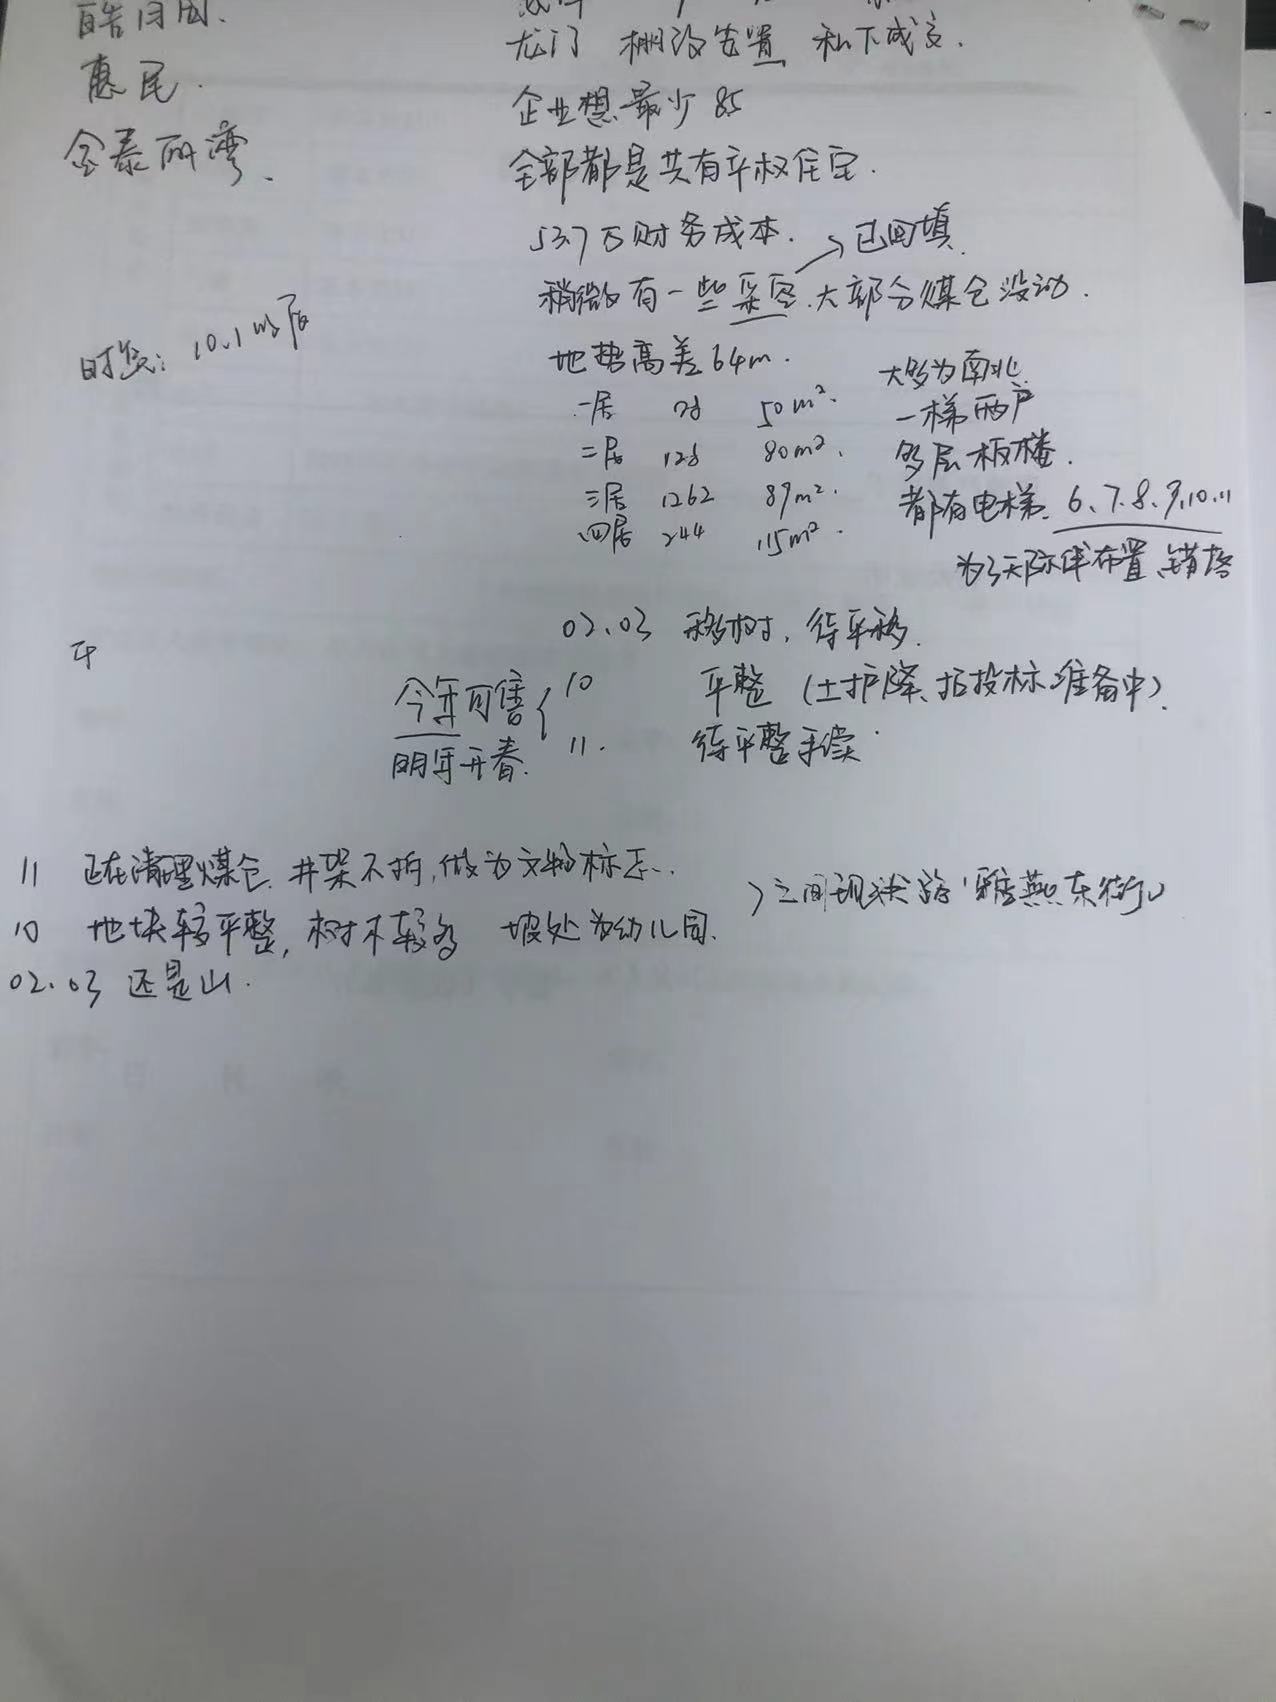 惠民.
龙门 棚改安置 私下成交.
企业想最少 85
金泰丽湾、
全部都是共有产权住宅.
53.7万财务成本. → 已回填.
稍微有一些采空.大部分煤仓没动.
时: 10.1以后
地势高差64m.
大多为南北
一居 50m².
一梯两户
二居 128 80m².
多层板楼.
三居 1262 89m².
都有电梯. 6、7.8.9.10.11
四居 244 115m².
为了天际线布置、错落
02.03 移树, 待平移.
平
今年可售 { 10 平整 (土护降、招投标准备中).
明年开春. 11. 待平整手续.
11 正在清理煤仓. 井架不拆,做为文物标志..
10 地块较平整, 树木较多 坡处为幼儿园.
之间现状路
02.03 还是山.